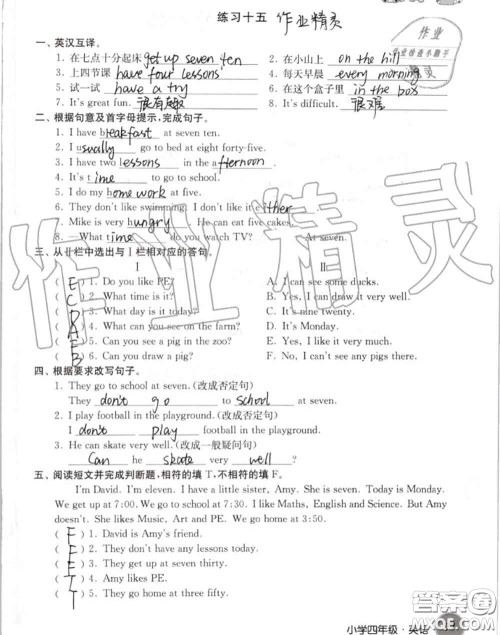 练习十五 作业精灵
作业
精灵
一、英汉互译。
1. 在七点十分起床 get up seven ten 2. 在小山上 on the hill
3. 上四节课 have four lessons 4. 每天早晨 every morning
5. 试一试 have a try 6. 在这个盒子里 in the box
7. It's great fun. 很有趣 8. It's difficult. 很难
二、根据句意及首字母提示,完成句子。
1. I have breakfast at seven ten.
2. I usually go to bed at eight forty-five.
3. I have two lessons in the afternoon.
4. It's time to go to school.
5. I do my homework at five.
6. They don't like swimming. I don't like it either.
7. Mike is very hungry. He can eat five cakes.
8. —What time do you watch TV? —At seven.
三、从Ⅱ栏中选出与Ⅰ栏相对应的答句。
Ⅰ Ⅱ
( E ) 1. Do you like PE? A. I can see some ducks.
( C ) 2. What time is it? B. Yes, I can draw very well.
( D ) 3. What day is it today? C. It's nine twenty.
( A ) 4. What can you see on the farm? D. It's Monday.
( F ) 5. Can you see a pig in the zoo? E. Yes, I like it very much.
( B ) 6. Can you draw a pig? F. No, I can't see any pigs there.
四、根据要求改写句子。
1. They go to school at seven. (改成否定句)
They don't go to school at seven.
2. I play football in the playground. (改成否定句)
I don't play football in the playground.
3. He can skate very well. (改成一般疑问句)
Can he skate very well?
五、阅读短文并完成判断题,相符的填 T,不相符的填 F。
I'm David. I'm eleven. I have a little sister, Amy. She is seven. Today is Monday.
We get up at 7:00. We go to school at 7:30. I like Maths, English and Science. But Amy
doesn't. She likes Music, Art and PE. We go home at 3:50.
( F ) 1. David is Amy's friend.
( F ) 2. They don't have any lessons today.
( F ) 3. They get up at seven thirty.
( T ) 4. Amy likes PE.
( T ) 5. They go home at three fifty.
小学四年级·英语
作业精灵